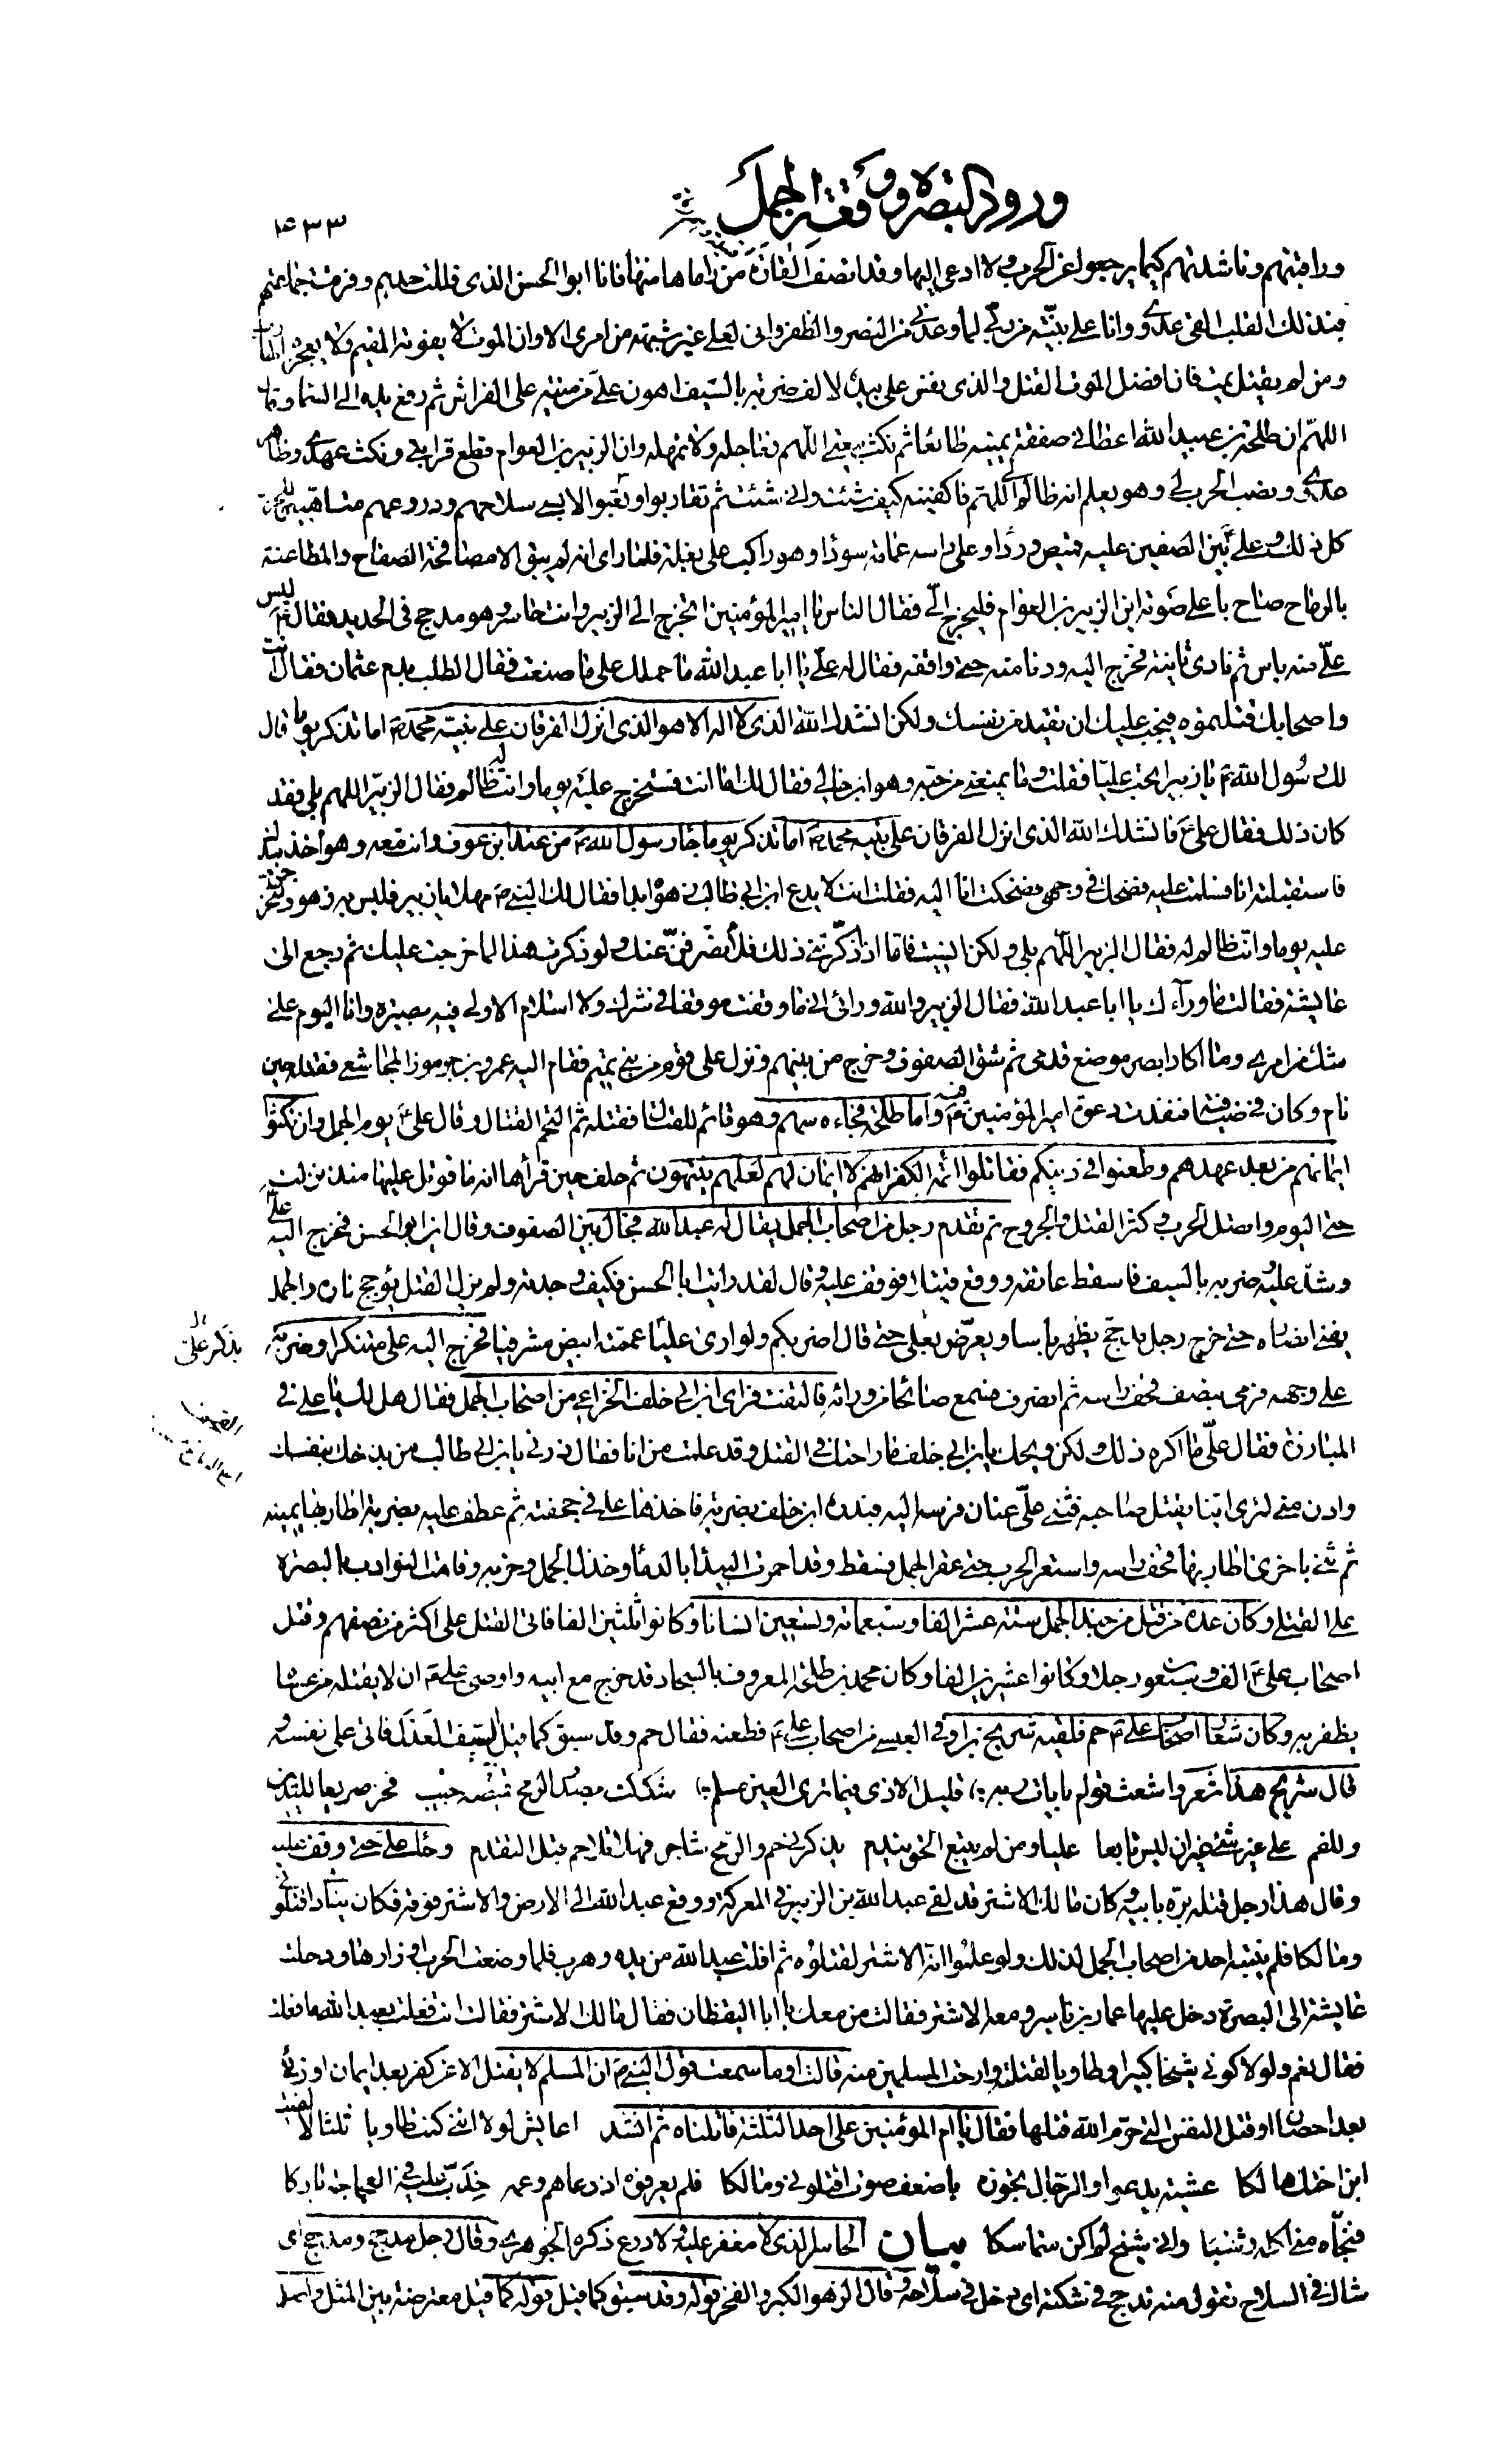 ورود البصرة ووقعة الجمل
٤٣٣
وراقبتهم وناشدتهم كيما يرجعوا عن الحرب ولا ادعى اليها وقد انصف القارة من راماها منها فانا ابو الحسن الذي فللت حدهم وفرقت جماعتهم
فبذلك القلب القى عدوي وانا على بينة من ربي لما وعدني من النصر والظفر واني لعلى غير شبهة من امري الا وان الموت لا يفوته المقيم ولا يعجزه الهارب
ومن لم يقتل يمت فان افضل الموت القتل والذي نفس علي بيده لالف ضربة بالسيف اهون علي من ميتة على الفراش ثم رفع يده الى السماء وقال
اللهم ان طلحة بن عبيد الله اعطاني صفقة يمينه طائعا ثم نكث بيعتي اللهم فعاجله ولا تمهله وان الزبير بن العوام قطع قرابتي ونكث عهدي وظاهر
عدوي ونصب الحرب لي وهو يعلم انه ظالم لي اللهم فاكفنيه كيف شئت وانى شئت ثم تقاربوا وتعبوا لابسي سلاحهم ودروعهم متأهبين للحرب
كل ذلك وعلي بين الصفين عليه قميص ورداء وعلى راسه عمامة سوداء وهو راكب على بغلة فلما راى انه لم يبق الا مصافحة الصفاح والمطاعنة
بالرماح صاح باعلى صوته اين الزبير بن العوام فليخرج الي فقال الناس يا امير المؤمنين اتخرج الى الزبير وانت حاسر وهو مدجج في الحديد فقال ع ليس
علي منه باس ثم نادى ثانية فخرج اليه ودنا منه حتى واقفه فقال له علي يا ابا عبد الله ما حملك على ما صنعت فقال الطلب بدم عثمان فقال انت
واصحابك قتلتموه فيجب عليك ان تقيد من نفسك ولكن انشدك الله الذي لا اله الا هو الذي انزل الفرقان على نبيه محمد ص اما تذكر يوما قال
لك رسول الله ص يا زبير اتحب عليا فقلت وما يمنعني من حبه وهو ابن خالي فقال لك اما انت فستخرج عليه يوما وانت له ظالم فقال الزبير اللهم بلى فقد
كان ذلك فقال علي ع فانشدك الله الذي انزل الفرقان على نبيه محمد ص اما تذكر يوما جاء رسول الله ص من عند ابن عوف وانت معه وهو اخذ بيدك
فاستقبلته انا فسلمت عليه فضحك في وجهي وضحكت انا اليه فقلت انت لا يدع ابن ابي طالب زهوه ابدا فقال لك النبي ص مهلا يا زبير فليس به زهو ولتخرجن
عليه يوما وانت ظالم له فقال الزبير اللهم بلى ولكن انسيت فاما اذا ذكرتني ذلك فلأنصرفن عنك ولو ذكرت هذا لما خرجت عليك ثم رجع الى
عايشة فقالت ما وراءك يا ابا عبد الله فقال الزبير والله ورائي اني ما وقفت موقفا في شرك ولا اسلام الا ولي فيه بصيرة وانا اليوم على
شك من امري وما اكاد ابصر موضع قدمي ثم شق الصفوف وخرج من بينهم ونزل على قوم من بني تميم فقام اليه عمرو بن جرموز المجاشعي فقتله حين
نام وكان في ضيافته فنفذت دعوة امير المؤمنين ع فيه واما طلحة فجاءه سهم وهو قائم للقتال فقتله ثم التحم القتال وقال علي ع يوم الجمل وان نكثوا
ايمانهم من بعد عهدهم وطعنوا في دينكم فقاتلوا ائمة الكفر انهم لا ايمان لهم لعلهم ينتهون ثم حلف حين قرأها انه ما قوتل عليها منذ نزلت
حتى اليوم واتصل الحرب وكثر القتل والجروح ثم تقدم رجل من اصحاب الجمل يقال له عبد الله فجال بين الصفوف وقال اين ابو الحسن فخرج اليه علي
وشد عليه وضربه بالسيف فاسقط عاتقه ووقع قتيلا فوقف عليه وقال لقد رايت ابا الحسن فكيف وجدته ولم يزل القتل يؤجج ناره والجمل
يفنى انصاره حتى خرج رجل مدجج يظهر باسا ويعرض بعلي حتى قال اضربكم ولو ارى عليا عممته ابيض مشرفيا فخرج اليه علي متنكرا وضربه
بذكر علي
على وجهه فرمى بنصف قحف راسه ثم انصرف فسمع صائحا من ورائه فالتفت فراى ابن ابي خلف الخزاعي من اصحاب الجمل فقال هل لك يا علي في
المبارزة فقال علي ما اكره ذلك ولكن ويحك يا بن ابي خلف ما راحتك في القتل وقد علمت من انا فقال ذرني يا بن ابي طالب من بذخك بنفسك
وادن مني لترى اينا يقتل صاحبه فثنى علي عنان فرسه اليه فبدره ابن خلف بضربة فاخذها علي في جحفته ثم عطف عليه بضربة اطار بها يمينه
ثم ثنى باخرى اطار بها قحف راسه واستعر الحرب حتى عقر الجمل فسقط وقد احمرت البيداء بالدماء وخذل الجمل وحزبه وقامت النوادب بالبصرة
على القتلى وكان عدة من قتل من جند الجمل ستة عشر الفا وسبعمائة وتسعين انسانا وكانوا ثلثين الفا فاتى القتل على اكثر من نصفهم وقتل
اصحاب علي ع الف وسبعون رجلا وكانوا عشرين الفا وكان محمد بن طلحة المعروف بالسجاد قد خرج مع ابيه واوصى علي ع ان لا يقتله من عساه
يظفر به وكان شعار اصحاب علي ع حم فلقيه شريح بن اوفى العبسي من اصحاب علي ع فطعنه فقال حم وقد سبق كما قيل السيف العذل فاتى على نفسه
قال شريح هذا شعر واشعث قوام بايات ربه قليل الاذى فيما ترى العين مسلم شككت بصدر الرمح جيب قميصه فخر صريعا لليدين
وللفم على غير شيء غير ان ليس تابعا عليا ومن لم يتبع الحق يندم يذكرني حم والرمح شاجر فهلا تلا حم قبل التقدم وجاء علي حتى وقف عليه
وقال هذا رجل قتله بره بابيه وكان مالك الاشتر قد لقي عبد الله بن الزبير في المعركة ووقع عبد الله الى الارض والاشتر فوقه فكان ينادي اقتلوني
ومالكا فلم ينتبه احد من اصحاب الجمل لذلك ولو علموا انه الاشتر لقتلوه ثم افلت عبد الله من يده وهرب فلما وضعت الحرب اوزارها ودخلت
عايشة الى البصرة دخل عليها عمار بن ياسر ومعه الاشتر فقالت من معك يا ابا اليقظان فقال مالك الاشتر فقالت انت فعلت بعبد الله ما فعلت
فقال نعم ولولا كوني شيخا كبيرا وطاويا لقتلته وارحت المسلمين منه قالت اوما سمعت قول النبي ص ان المسلم لا يقتل الا عن كفر بعد ايمان او زنى
بعد احصان او قتل النفس التي حرم الله قتلها فقال يا ام المؤمنين على احد الثلثة قاتلناه ثم انشد اعايش لولا انني كنت طاويا ثلثا لالفيت
ابن اختك هالكا عشية يدعو والرجال تحوزه باضعف صوت اقتلوني ومالكا فلم يعرفوه اذ دعاهم وعمه خدب عليه في العجاجة باركا
فنجاه مني اكله وشبابه واني شيخ لم اكن متماسكا بيان الحاسر الذي لا مغفر عليه ولا درع ذكره الجوهري وقال رجل مدجج ومدجج اي
شاك في السلاح تقول منه تدجج في شكته اي دخل في سلاحه وقال الزهو الكبر والفخر قوله وقد سبق كما قيل قوله كما قيل معترضة بين المثل واصله